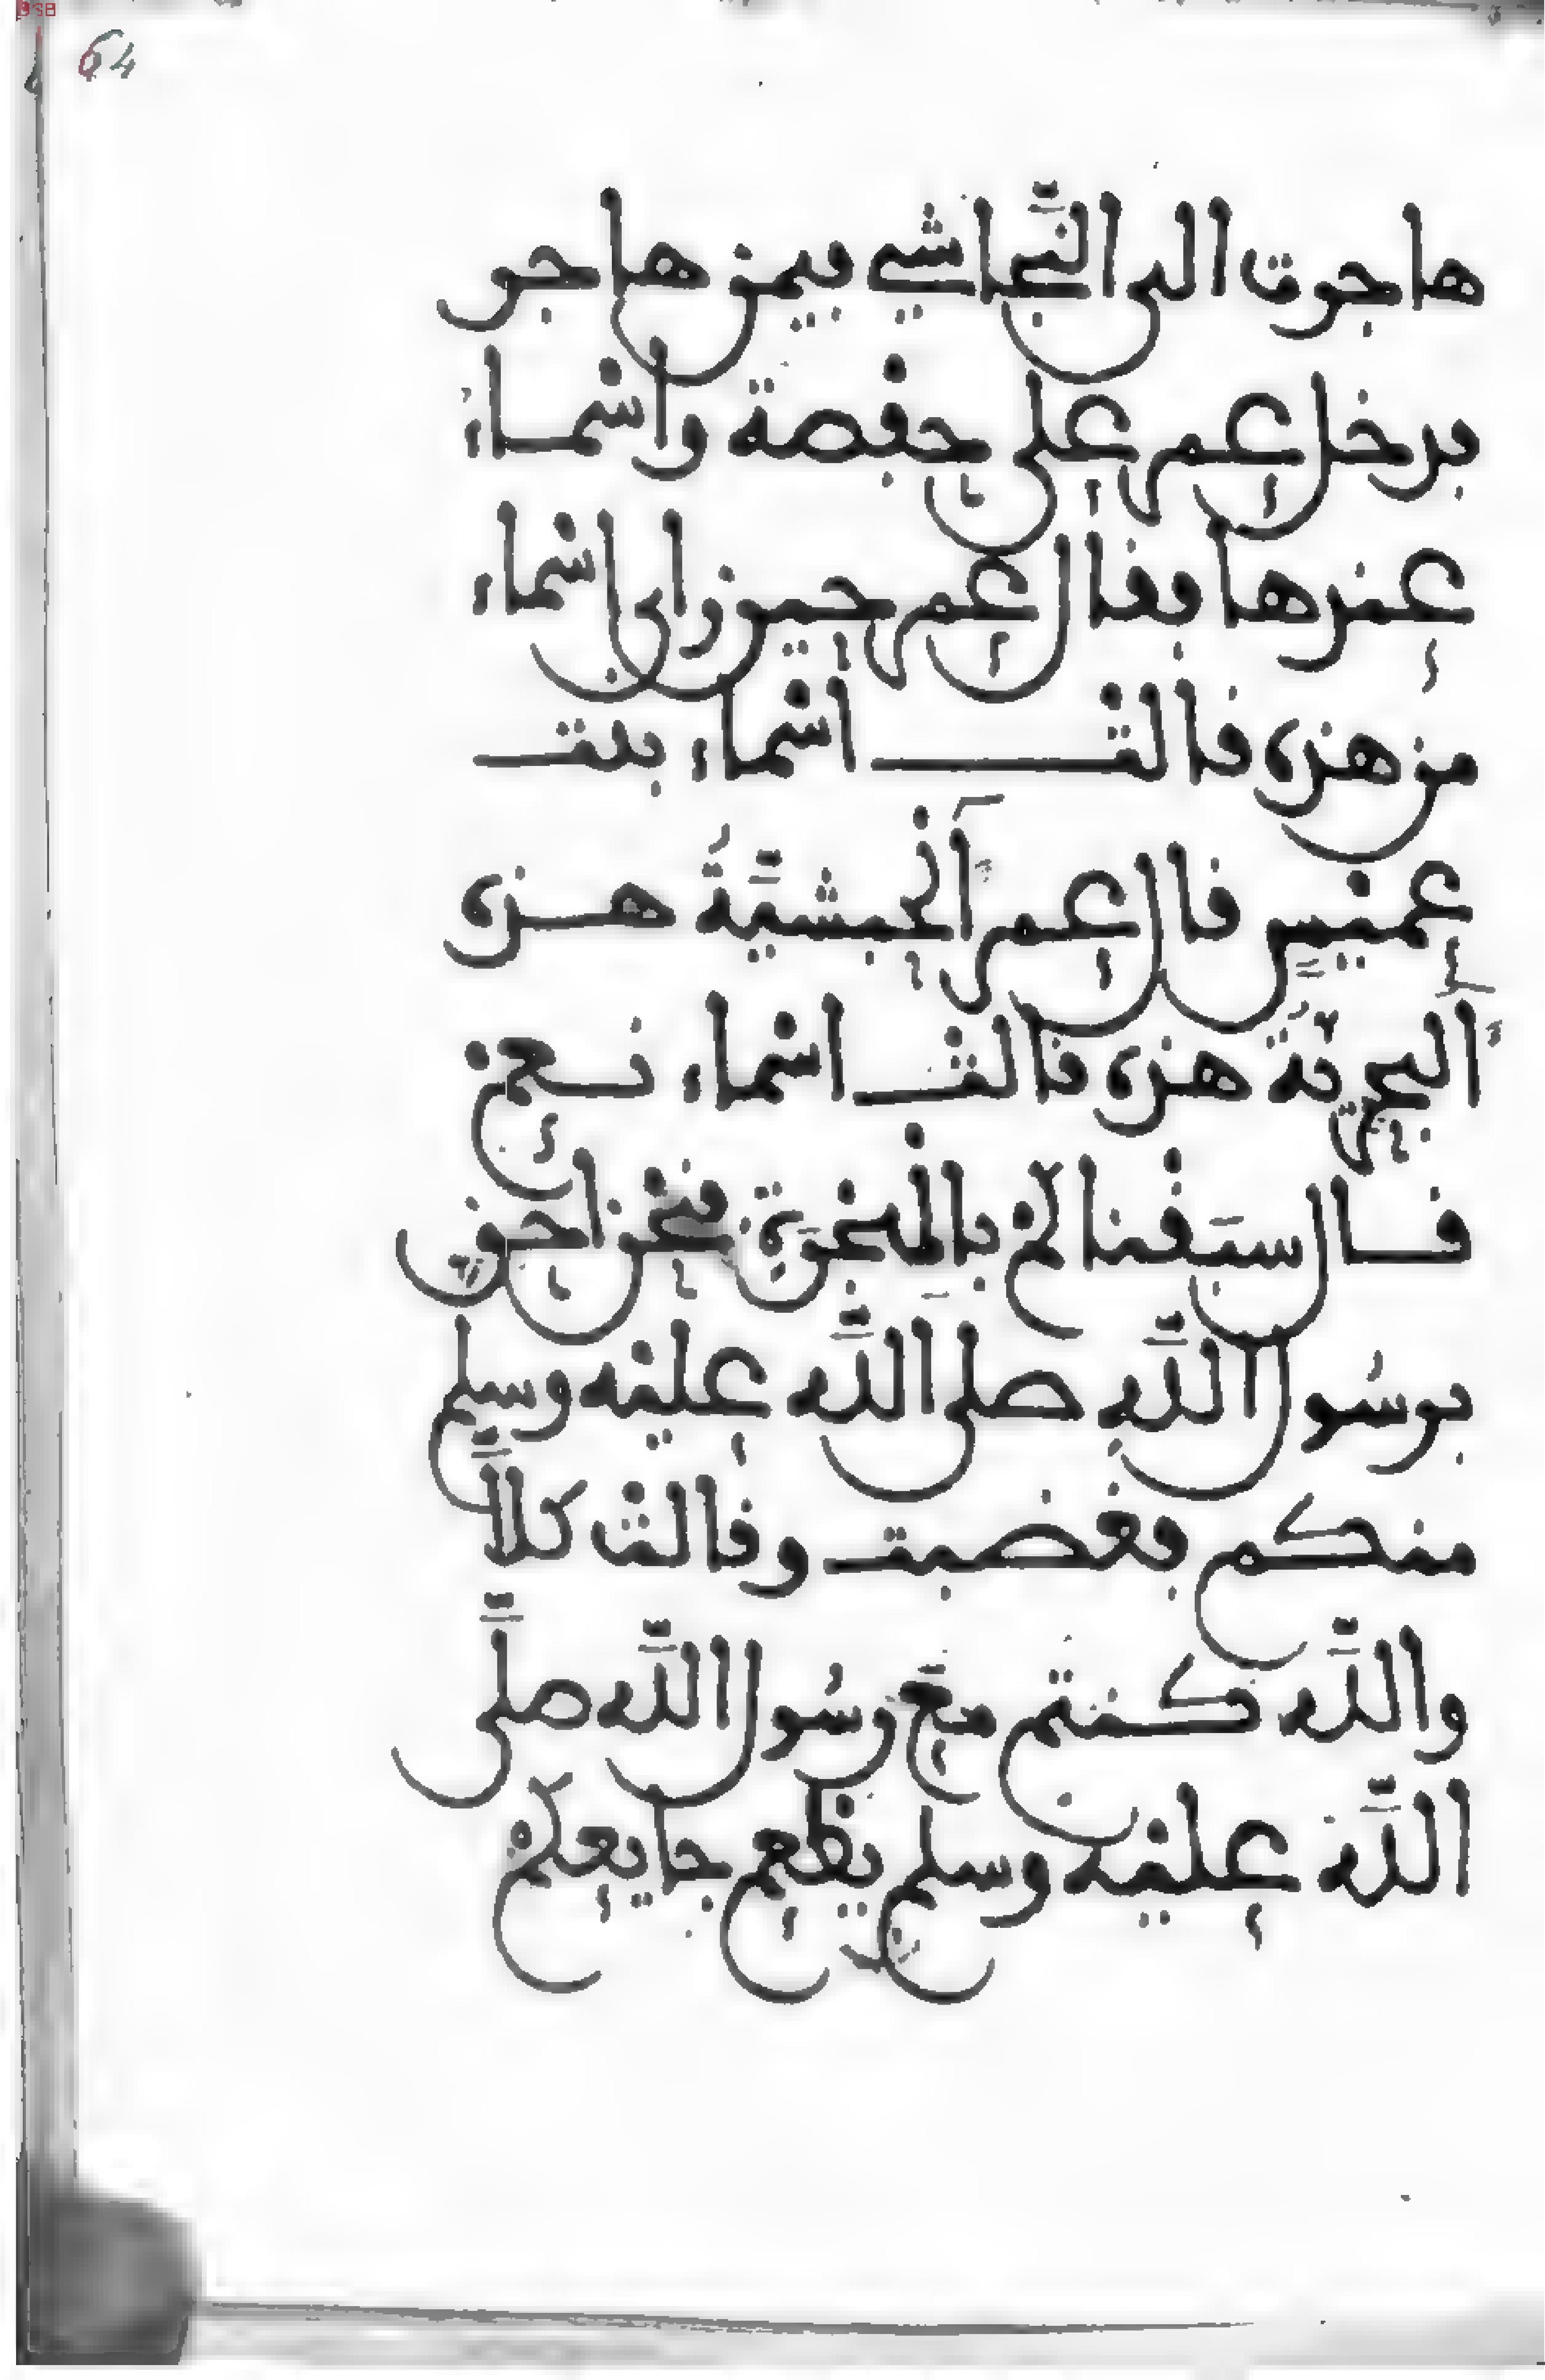 64
هاجرت الى النَّجاشي فيمن هاجر
فدخل عمر على حفصة واسْماء
عندها فقال عمر حين راى اسْماء
من هذه قالتْ اسْماء بنت
عميْسٍ قال عمر آلْحبشيَّةُ هذه
آلبحْريّةُ هذه قالتْ اسْماء نعمْ
قال سبَقْناكمْ بالْهجْرَةِ فنحْن احق
برسُول اللَّهِ صلى اللَّه عليْه وسلم
منكم فغضبت وقالتْ كلاَّ
واللَّه كنتم معَ رسُول اللَّه صلَّى
اللَّه عليْه وسلم يطْعم جايعكمْ